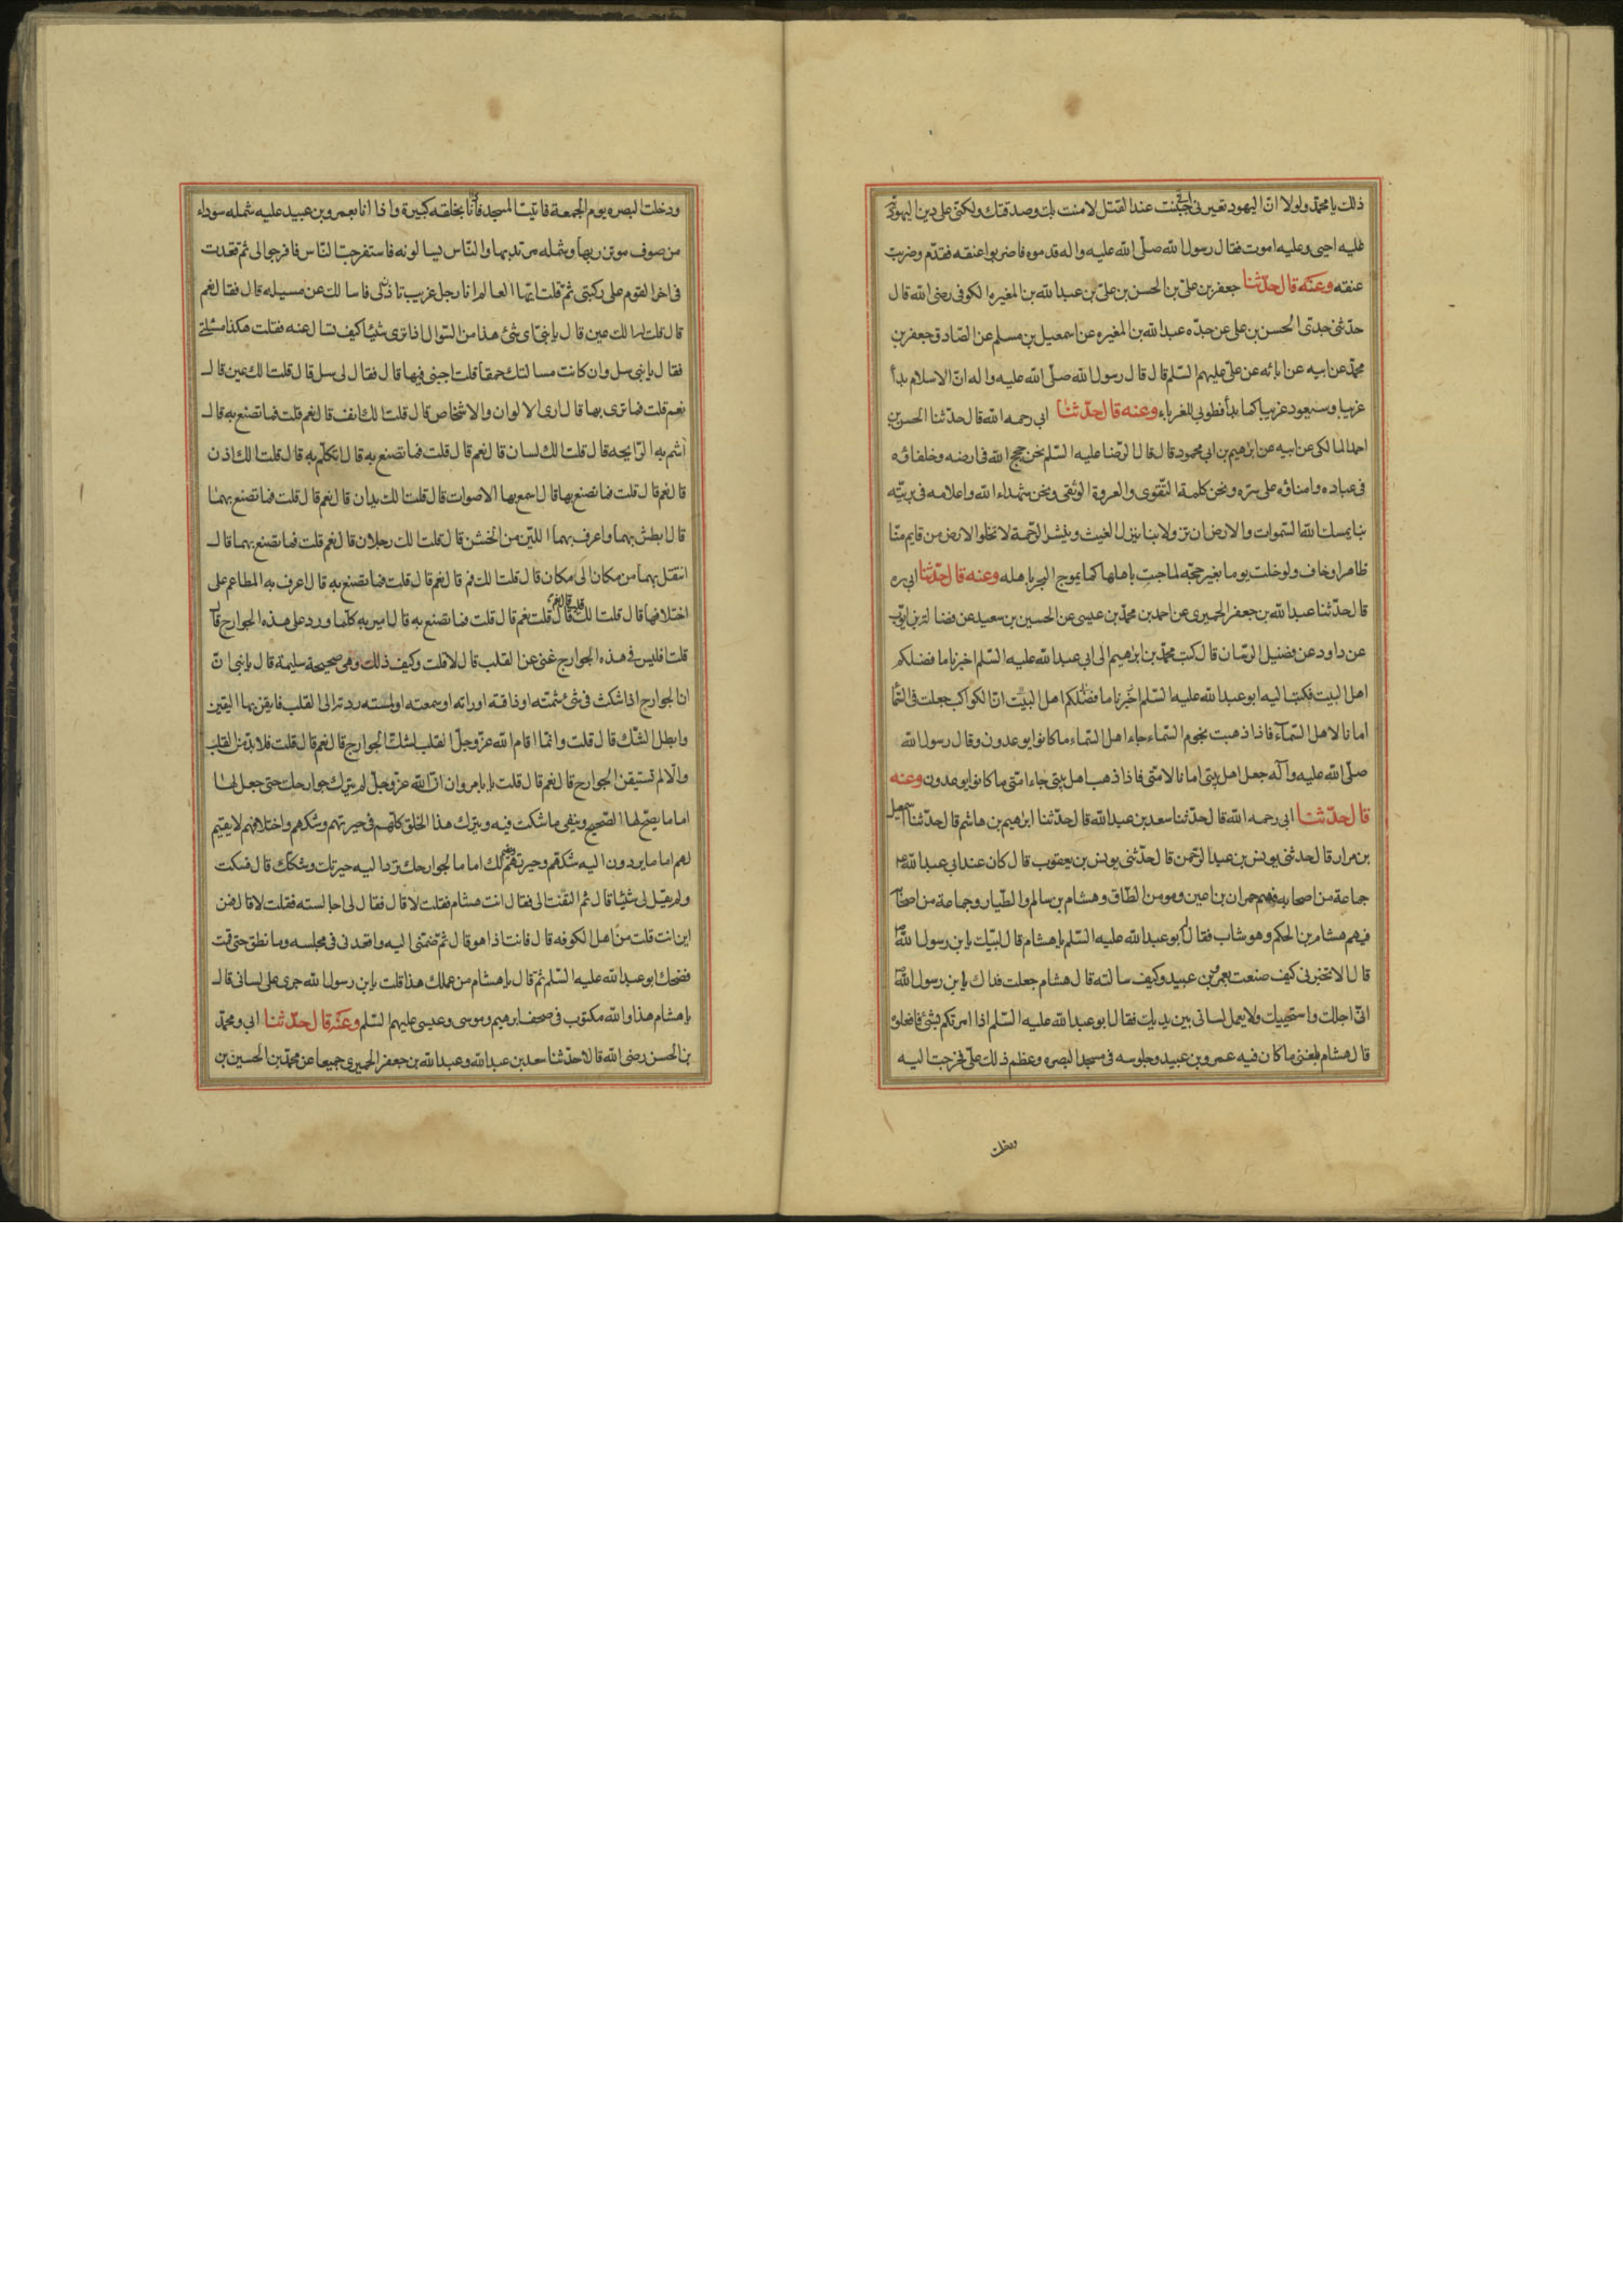 ذلك يا محمد ولولا ان اليهود تعيرنى انى جبنت عند القتل لامنت بك وصدقتك ولكنى على دين اليهود
عليه احيى وعليه اموت فقال رسول الله صلّى الله عليه واله قدموه فاضربوا عنقه فقدّم وضربت
عنقه وعنه قال حدّثنا جعفر بن علىّ بن الحسن بن علىّ بن عبدالله بن المغيره الكوفى رضى الله قال
حدّثنى جدى الحسن بن على عن جدّه عبدالله بن المغيره عن اسمعيل بن مسلم عن الصّادق جعفر بن
محمّد عن ابيه عن ابائه عن علىّ عليهم السّلم قال قال رسول الله صلّى الله عليه واله انّ الاسلام بدأ
غريبا وسيعود غريبا كما بدأ فطوبى للغرباء وعنه قال حدّثنا ابى رحمه الله قال حدّثنا الحسن بن
احمد المالكى عن ابيه عن ابرهيم بن ابى محمود قال قال الرّضا عليه السّلم نحن حجج الله فى ارضه وخلفاؤه
فى عباده وامناؤه على سرّه ونحن كلمة التّقوى والعروة الوثقى ونحن شهداء الله واعلامه فى بريّته
بنا يمسك الله السّموات والارض ان تزولا وبنا ينزل الغيث وينشر الرّحمة لا تخلوا الارض من قايم منّا
ظاهر او خاف ولو خلت يوما بغير حجّه لماجت باهلها كما يموج البحر باهله وعنه قال حدّثنا ابى ره
قال حدّثنا عبدالله بن جعفر الحميرى عن احمد بن محمّد بن عيسى عن الحسين بن سعيد عن فضالة بن ايوب
عن داود عن فضيل الرسّان قال كتب محمّد بن ابرهيم الى ابى عبدالله عليه السّلم اخبرنا ما فضلكم
اهل البيت فكتب اليه ابو عبدالله عليه السّلم اخبرنا ما فضلكم اهل البيت انّ الكواكب جعلت فى السّما
امانا لاهل السّمآء فاذا ذهبت نجوم السّماء جاء اهل السّماء ما كانوا يوعدون وقال رسول الله
صلّى الله عليه وآله جعل اهل بيتى امانا لامتى فاذا ذهب اهل بيتى جاء امتى ما كانوا يوعدون وعنه
قال حدّثنا ابى رحمه الله قال حدّثنا سعد بن عبدالله قال حدّثنا ابرهيم بن هاشم قال حدّثنا اسمعيل
بن مرار قال حدثنى يونس بن عبدالرّحمن قال حدّثنى يونس بن يعقوب قال كان عند ابى عبدالله ع
جماعة من اصحابه فيهم حمران بن اعين ومومن الطّاق وهشام بن سالم والطّيار وجماعة من اصحابه
فيهم هشام بن الحكم وهو شاب فقال ابو عبدالله عليه السّلم يا هشام قال لبّيك يا بن رسول الله
قال الا تخبرنى كيف صنعت بعمرو بن عبيد وكيف سالته قال هشام جعلت فداك يا بن رسول الله
انّى اجلك واستحييك ولا يعمل لسانى بين يديك فقال ابو عبدالله عليه السّلم اذا امرتكم بشئ فافعلوه
قال هشام بلغنى ما كان فيه عمرو بن عبيد وجلوسه فى مسجد البصره وعظم ذلك علىّ فخرجت اليه
ودخلت البصره يوم الجمعة فاتيت المسجد فاذا انا بحلقه كبيرة واذا انا بعمرو بن عبيد عليه شمله سوداء
من صوف موتزر بها وشمله مرتد بها والنّاس يسالونه فاستفرجت النّاس فافرجوا لى ثم قعدت
فى اخر القوم على ركبتى ثمّ قلت ايّها العالم انا رجل غريب تاذن لى فاسالك عن مسيله قال فقال نعم
قال قلت له الك عين قال يا بنى اى شئ هذا من السّوال اذا ترى شيئا كيف تسال عنه فقلت هكذا مسئلتى
فقال يا بنى سل وان كانت مسالتك حمقا قلت اجبنى فيها قال فقال لى سل قال قلت الك عين قال
نعم قلت فما ترى بها قال ارى الالوان والاشخاص قال قلت الك انف قال نعم قلت فما تصنع به قال
اشم به الرّايحه قال قلت الك لسان قال نعم قال قلت فما تصنع به قال اتكلّم به قال قلت الك اذن
قال نعم قال قلت فما تصنع بها قال اسمع بها الاصوات قال قلت الك يدان قال نعم قال قلت فما تصنع بهما
قال ابطش بهما واعرف بهما اللّين من الخشن قال قلت الك رجلان قال نعم قلت فما تصنع بهما قال
انتقل بهما من مكان الى مكان قال قلت الك فم قال نعم قال قلت فما تصنع به قال اعرف به المطاعم على
اختلافها قال قلت الك قلب قال نعم قال قلت فما تصنع به قال اميز به كلّما ورد على هذه الجوارح قال
قلت افليس فى هذه الجوارح غنى عن القلب قال لا قلت وكيف ذلك وهى صحيحة سليمة قال يا بنى انّ
ان الجوارح اذا شكت فى شئ شمته او ذاقته او راته او سمعته او لمسته ردته الى القلب فايقن بها اليقين
وابطل الشّك قال قلت وانّما اقام الله عزّ وجلّ القلب لشكّ الجوارح قال نعم قال قلت فلا بدّ من القلب
والّا لم تستيقن الجوارح قال نعم قال قلت يا با مروان انّ الله عزّ وجلّ لم يترك جوارحك حتى جعل لها
اماما يصحّ لها الصّحيح وينفى ما شكت فيه ويترك هذا الخلق كلّهم فى حيرتهم وشكهم واختلافهم لا يقيم
لهم اماما يردون اليه شكّهم وحيرتهم ويقيم لك اماما لجوارحك ترد اليه حيرتك وشكّك قال فسكت
ولم يقل لى شيئا قال ثم التفت الى فقال انت هشام فقلت لا قال فقال لى اجالسته فقلت لا قال فمن
اين انت قلت من اهل الكوفه قال فانت اذا هو قال ثمّ ضمّنى اليه واقعدنى فى مجلسه وما نطق حتى قمت
فضحك ابو عبدالله عليه السّلم ثمّ قال يا هشام من علمك هذا قلت يا بن رسول الله جرى على لسانى قال
يا هشام هذا والله مكتوب فى صحف ابرهيم وموسى وعيسى عليهم السّلم وعنه قال حدّثنا ابى ومحمّد
بن الحسن رضى الله قالا حدّثنا سعد بن عبدالله وعبدالله بن جعفر الحميرى جميعا عن محمّد بن الحسين بن